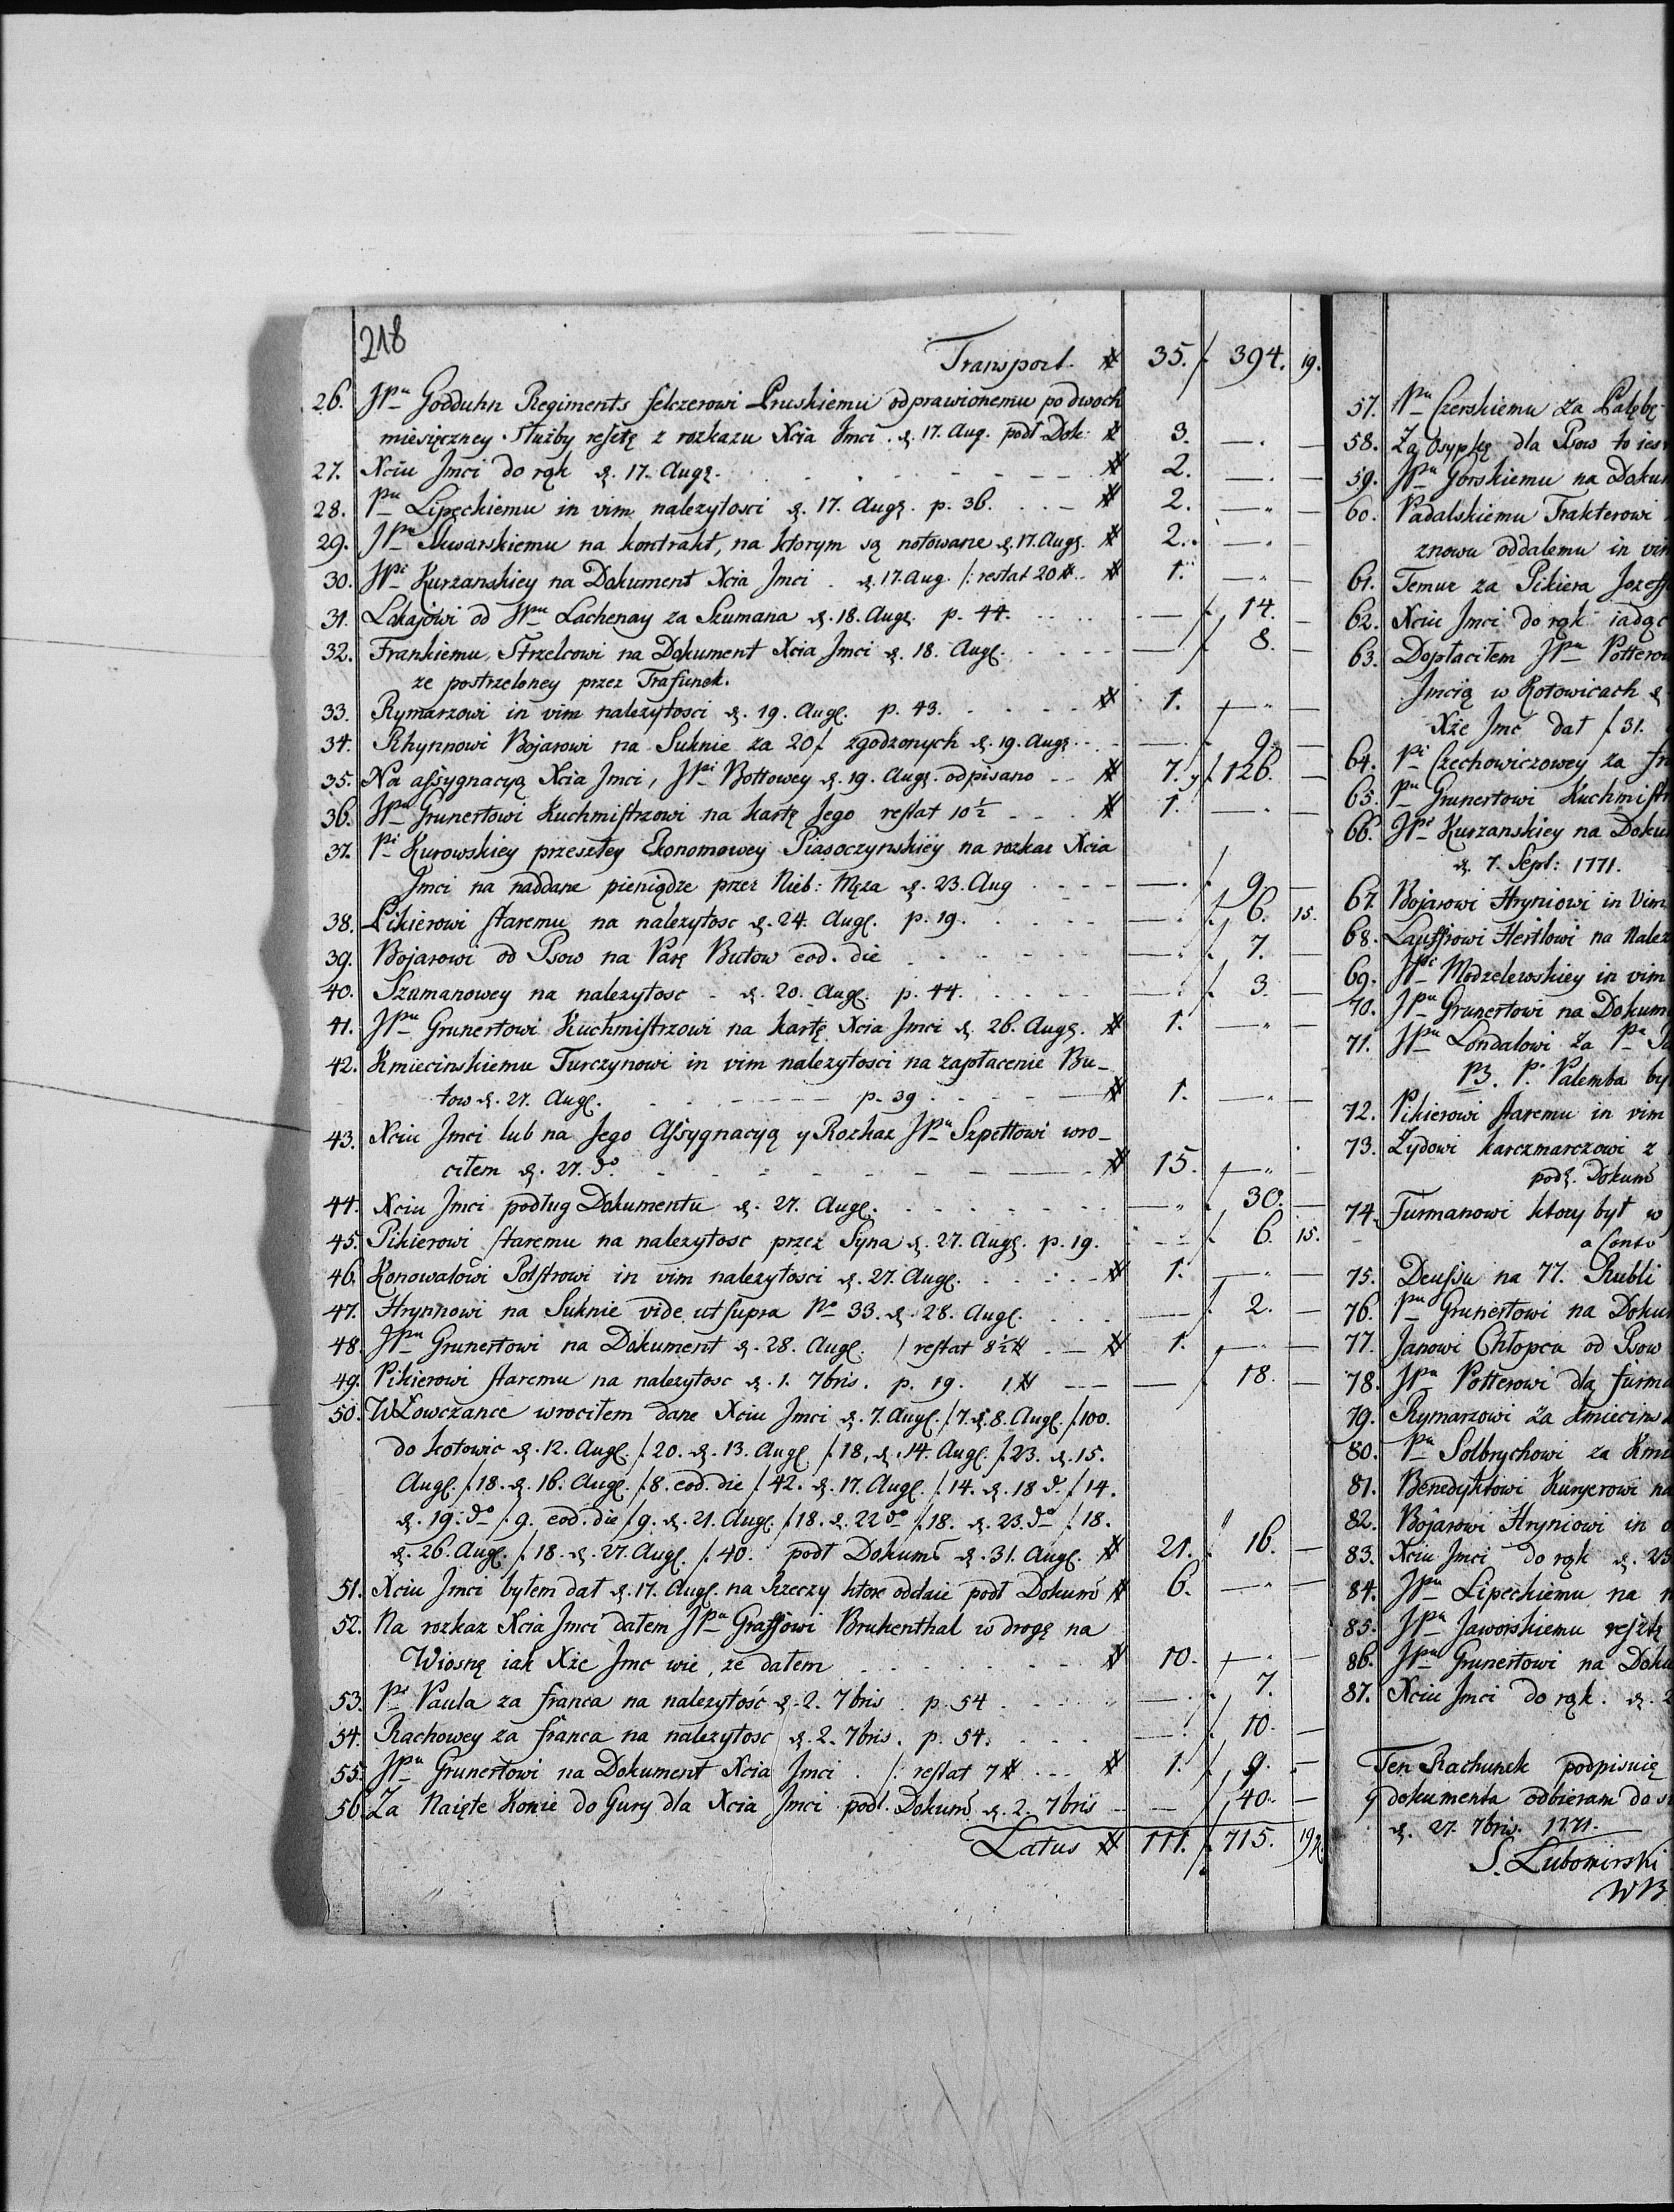 218
Transport. # 35. f. 394. 19.
26. JPu Godduhn Regiments felczerowi Pruskiemu odprawionemu po dwoch
miesięczney służby resztę z rozkazu Xcia Jmci. d. 17. Aug. podł Dok: # 3. — —
27. Xciu Jmci do rąk d. 17. Augs. # 2. — —
28. Pu Lipęckiemu in vim nalezytosci d. 17. Augs. p. 36. # 2. — —
29. JPu Skwarskiemu na kontrakt, na ktorym są notowane d. 17. Augs. # 2. — —
30. JPi Kurzanskiey na Dokument Xcia Jmci d. 17. Aug. /: restat 20 # # 1. — —
31. Lokajowi od JPni Lachenay za Szumana d. 18. Augs. p. 44. — f. 14. —
32. Frankiemu, Strzelcowi na Dokument Xcia Jmci d. 18. Augs. — f. 8. —
ze postrzeloney przez Trafunek.
33. Rymarzowi in vim nalezytosci d. 19. Augs. p. 43. # 1. — —
34. Rhynnowi Bojarowi na Suknie za 20 f zgodzonych d. 19. Augs. — f. 9. —
35. Na assygnacyą Xcia Jmci, JPi Bottowey d. 19. Augs. odpisano # 7. f. 126. —
36. JPu Grunertowi Kuchmistrzowi na kartę Jego restat 10½ # 1. — —
37. Pi Kurowskiey przeszłey Ekonomowey Piasoczynskiey na rozkaz Xcia
Jmci na naddane pieniądze przez Nieb: Męza d. 23. Aug — f. 9. —
38. Pikierowi staremu na nalezytosc d. 24. Augs. p. 19. — f. 6. 15.
39. Bojarowi od Psow na Parę Butow eod. die — f. 7. —
40. Szumanowey na nalezytosc d. 20. Augs. p. 44. — f. 3. —
41. JPu Grunertowi Kuchmistrzowi na kartę Xcia Jmci d. 26. Augs. # 1. — —
42. Kmiecinskiemu Turczynowi in vim nalezytosci na zapłacenie Bu-
tow d. 27. Augs. p. 39 # 1. — —
43. Xciu Jmci lub na Jego Assygnacyą y Rozkaz JPu Szpettowi wro-
ciłem d. 27. do # 15. — —
44. Xciu Jmci podług Dokumentu d. 27. Augs. — f. 30. —
45. Pikierowi staremu na nalezytosc przez Syna d. 27. Augs. p. 19. — f. 6. 15.
46. Konowałowi Polstrowi in vim nalezytosci d. 27. Augs. # 1. — —
47. Hrynnowi na Suknie vide ut supra No 33. d. 28. Augs. — f. 2. —
48. JPu Grunertowi na Dokument d. 28. Augs. / restat 8½ # # 1. — —
49. Pikierowi staremu na nalezytosc d. 1. 7bris. p. 19. 1 # — f. 18. —
50. W Łowczance wrociłem dane Xciu Jmci d. 7. Augs. f. 7. d. 8. Augs. f. 100.
do kotowic d. 12. Augs. f. 20. d. 13. Augs f. 18, d. 14. Augs. f. 23. d. 15.
Augs. f. 18. d. 16. Augs. f. 8. eod. die f. 42. d. 17. Augs. f. 14. d. 18 d. f. 14.
d. 19. do f. 9. eod. die f. 9. d. 21. Augs. f. 18. d. 22 do f. 18. d. 23. do f. 18.
d. 26. Augs. f. 18. d. 27. Augs. f. 40. podł Dokum d. 31. Augs. # 21. f. 16. —
51. Xciu Jmci byłem dał d. 17. Augs. na Rzeczy ktore oddaie podł Dokum # 6. — —
52. Na rozkaz Xcia Jmci dałem JPu Graffowi Brukenthal w drogę na
Wiosnę iak Xże Jmc wie, ze dałem # 10. — —
53. Pi Paula za franca na nalezytość d. 2. 7bris p. 54 — f. 7.
54. Rachowey za franca na nalezytosc d. 2. 7bris. p. 54. — f. 10. —
55. JPu Grunertowi na Dokument Xcia Jmci /: restat 7 # # 1. f. 9. —
56. Za Naięte Konie do Gury dla Xcia Jmci podł. Dokum d. 2. 7bris — f. 40. —
Latus # 111. f. 715. 19
57. Pu Czerskiemu za
58. Za Osypkę dla Psow to iest
59. JPu Gorskiemu na Dokum
60. Padalskiemu Trakterowi
znowu oddalemu in vim
61. Temuz za Pikiera Jozeff
62. Xciu Jmci do rąk iadąc
63. Dopłaciłem JPu Potterow
Jmcią w Kotowicach d
Xże Jmć dał f 31.
64. Pi Czechowiczowey za
65. Pu Grunertowi Kuchmistr
66. JPi Kurzanskiey na Doku
d. 7. Sept: 1771.
67. Bojarowi Hryniowi in Vim
68. Lauffrowi Hertlowi na Nalez
69. JPi Modzelewskiey in vim
70. JPu Grunertowi na Dokum
71. JPu Londalowi za Pa
P. Palemba by
72. Pikierowi staremu in vim
73. Zydowi karczmarzowi z
podł. Dokum
74. Furmanowi ktory był w
a Conto
75. Deussu na 77. Rubli
76. Pu Grunertowi na Doku
77. Janowi Chłopcu od Psow
78. JPu Potterowi dla furma
79. Rymarzowi za Kmiecins
80. Pu Solbrychowi za Kmi
81. Benedyktowi Kuryerowi na
82. Bojarowi Hryniowi in
83. Xciu Jmci do rąk d. 23
84. JPu Lipeckiemu na n
85. JPu Jaworskiemu resztę
86. JPu Grunertowi na Doku
87. Xciu Jmci do rąk. d. 2
Ten Rachunek podpisuię
y dokumenta odbieram do
d. 27. 7bris. 1771.
S. Lubomirski
WB